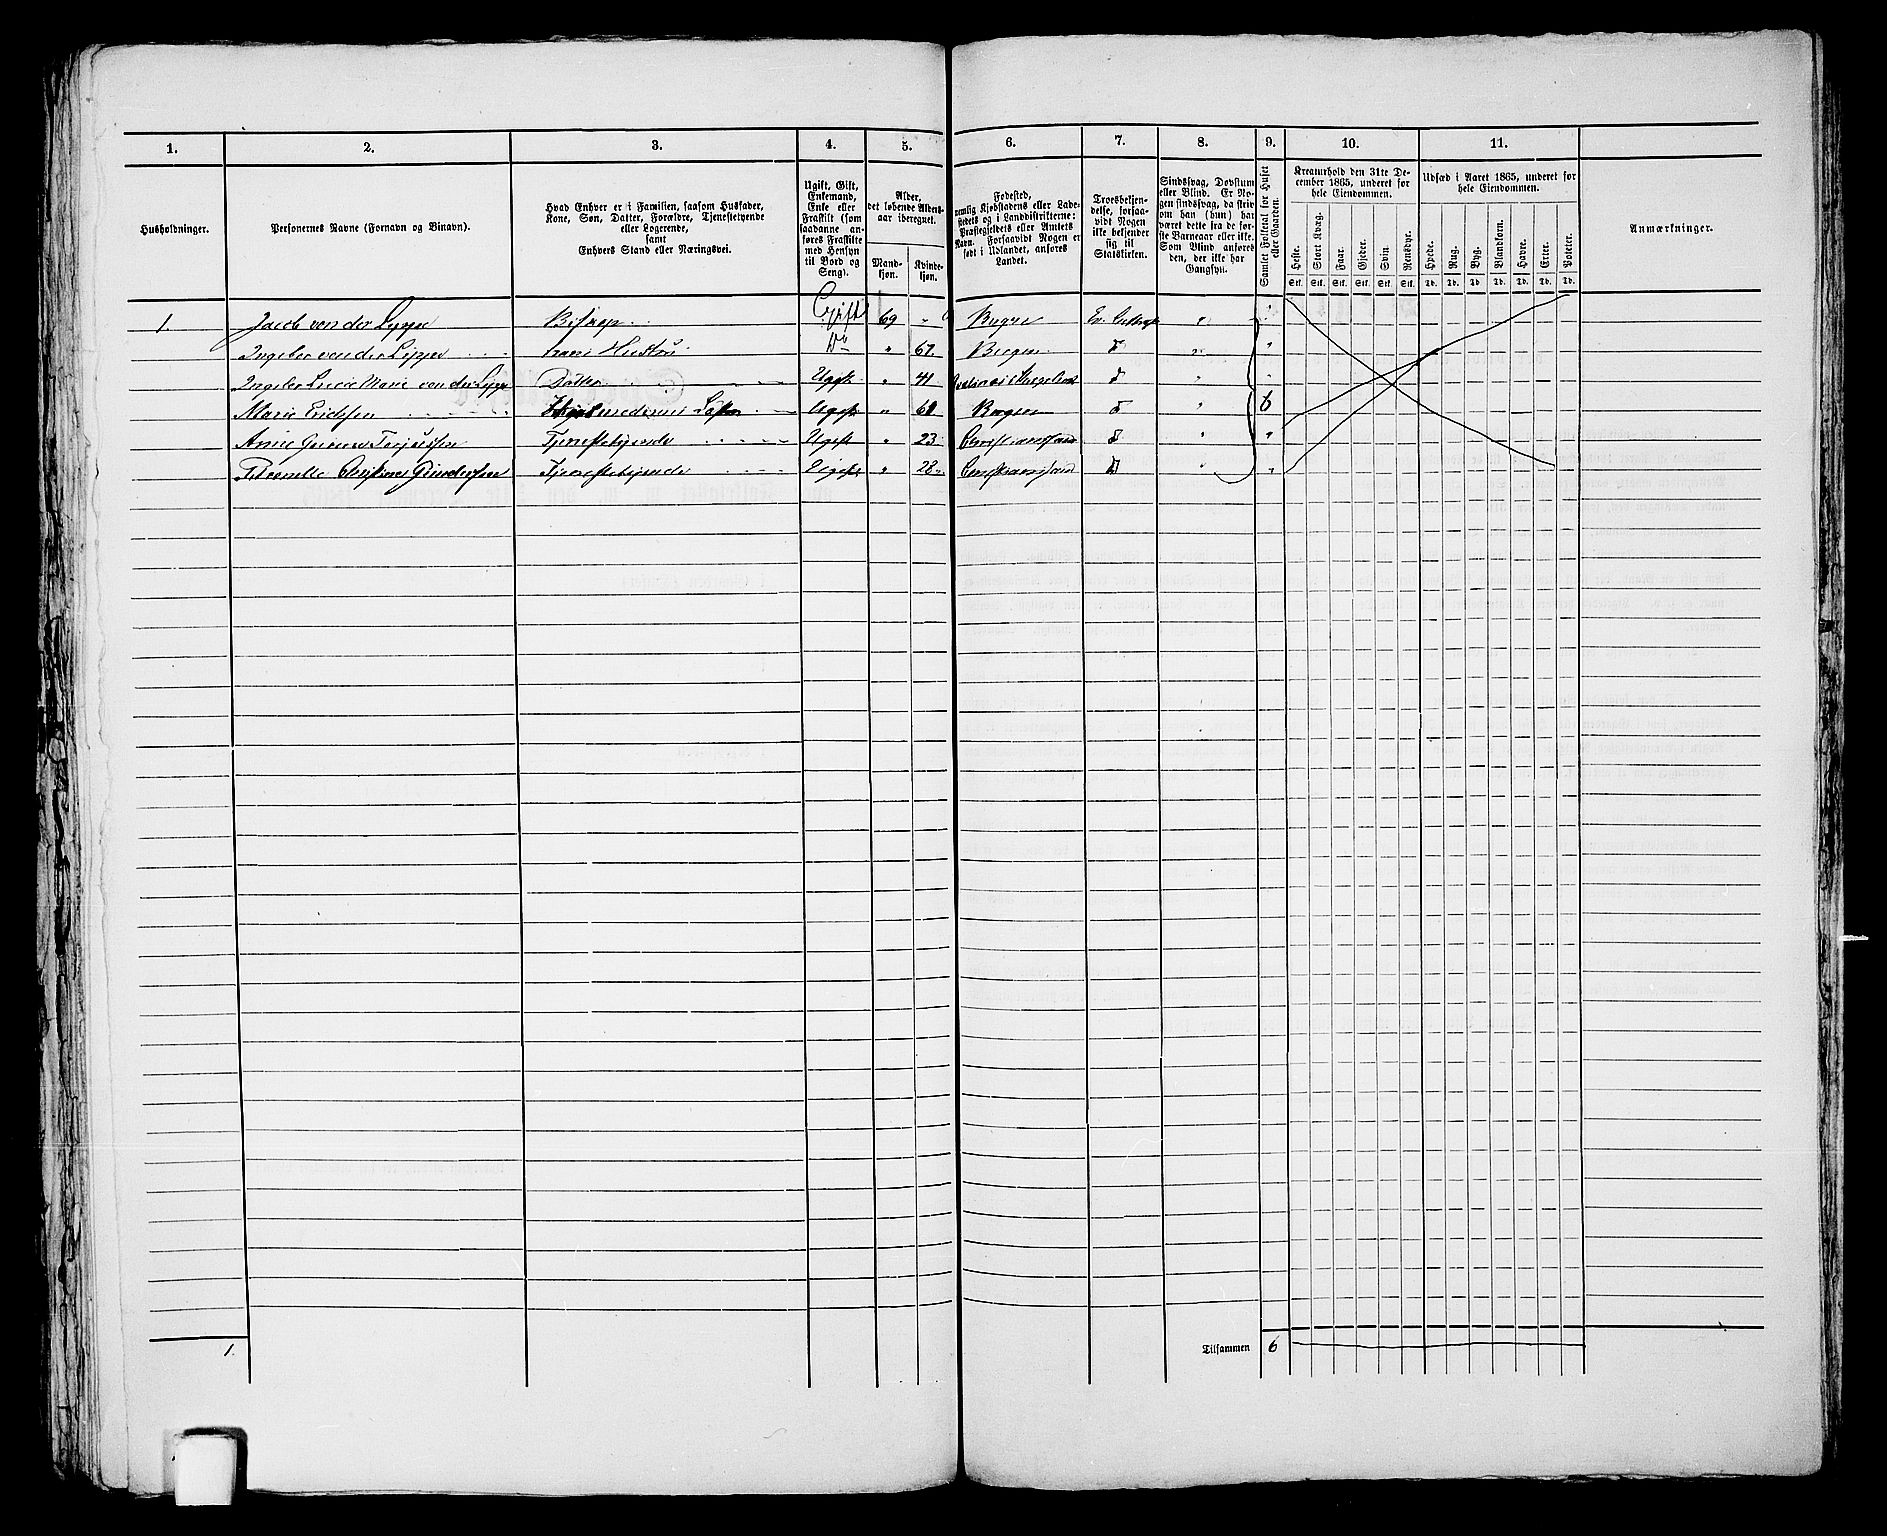 1. 2. 3. 4. 5. 6. 7. 8. 9. 10. 11.
Husholdninger.
Personernes Navne (Fornavn og Binavn).
Hvad Enhver er i Familien, saasom Husfader,
Kone, Søn, Datter, Forældre, Tjenestetyende
eller Logerende,
samt
Enhvers Stand eller Næringsvei.
Ugift, Gift,
Enkemand,
Enke eller
Fraskilt (som
saadanne an-
føres Fraskilte
med Hensyn
til Bord og
Seng).
Alder,
det løbende Alders-
aar iberegnet.
Mand-
kjøn.
Kvinde-
kjøn.
Fødested,
nemlig Kjøbstadens eller Lade-
stedets og i Landdistrikterne:
Præstegjeldets eller Amtets
Navn. Forsaavidt Nogen er
født i Udlandet, anføres
Landet.
Troesbekjen-
delse, forsaa-
vidt Nogen
ikke bekjender
sig til
Statskirken.
Sindssvag, Døvstum
eller Blind. Er No-
gen sindssvag, da skriv
om han (hun) har
været dette fra de før-
ste Barneaar eller ikke.
Som Blind anføres
den, der ikke har
Gangsyn.
Samlet Folketal for Huset
eller Gaarden.
Kreaturhold den 31te De-
cember 1865, underet for
hele Eiendommen.
Heste. Stort Kvæg. Faar. Gjeder. Svin. Rensdyr.
Stk. Stk. Stk. Stk. Stk. Stk.
Udsæd i Aaret 1865, underet for
hele Eiendommen.
Hvede. Rug. Byg. Blandkorn. Havre. Erter. Poteter.
Td. Td. Td. Td. Td. Td. Td.
Anmærkninger.
1. Jacob von der Lippe Biskop Gift 69 " Bergen Ev. "
Ingeber von der Lippe hans Hustru Do " 67. Bergen D " "
Ingeber Marie von der Lippe Datter Ugift " 41 D "
Marie Erichsen Ugift " 61 Bergen D " 6
Anne Terjussen Tjenestetyende Ugift " 23 Christianssand D " "
Gundersen Tjenestetyende Ugift " 28 Christianssand D " "
1. Tilsammen 6